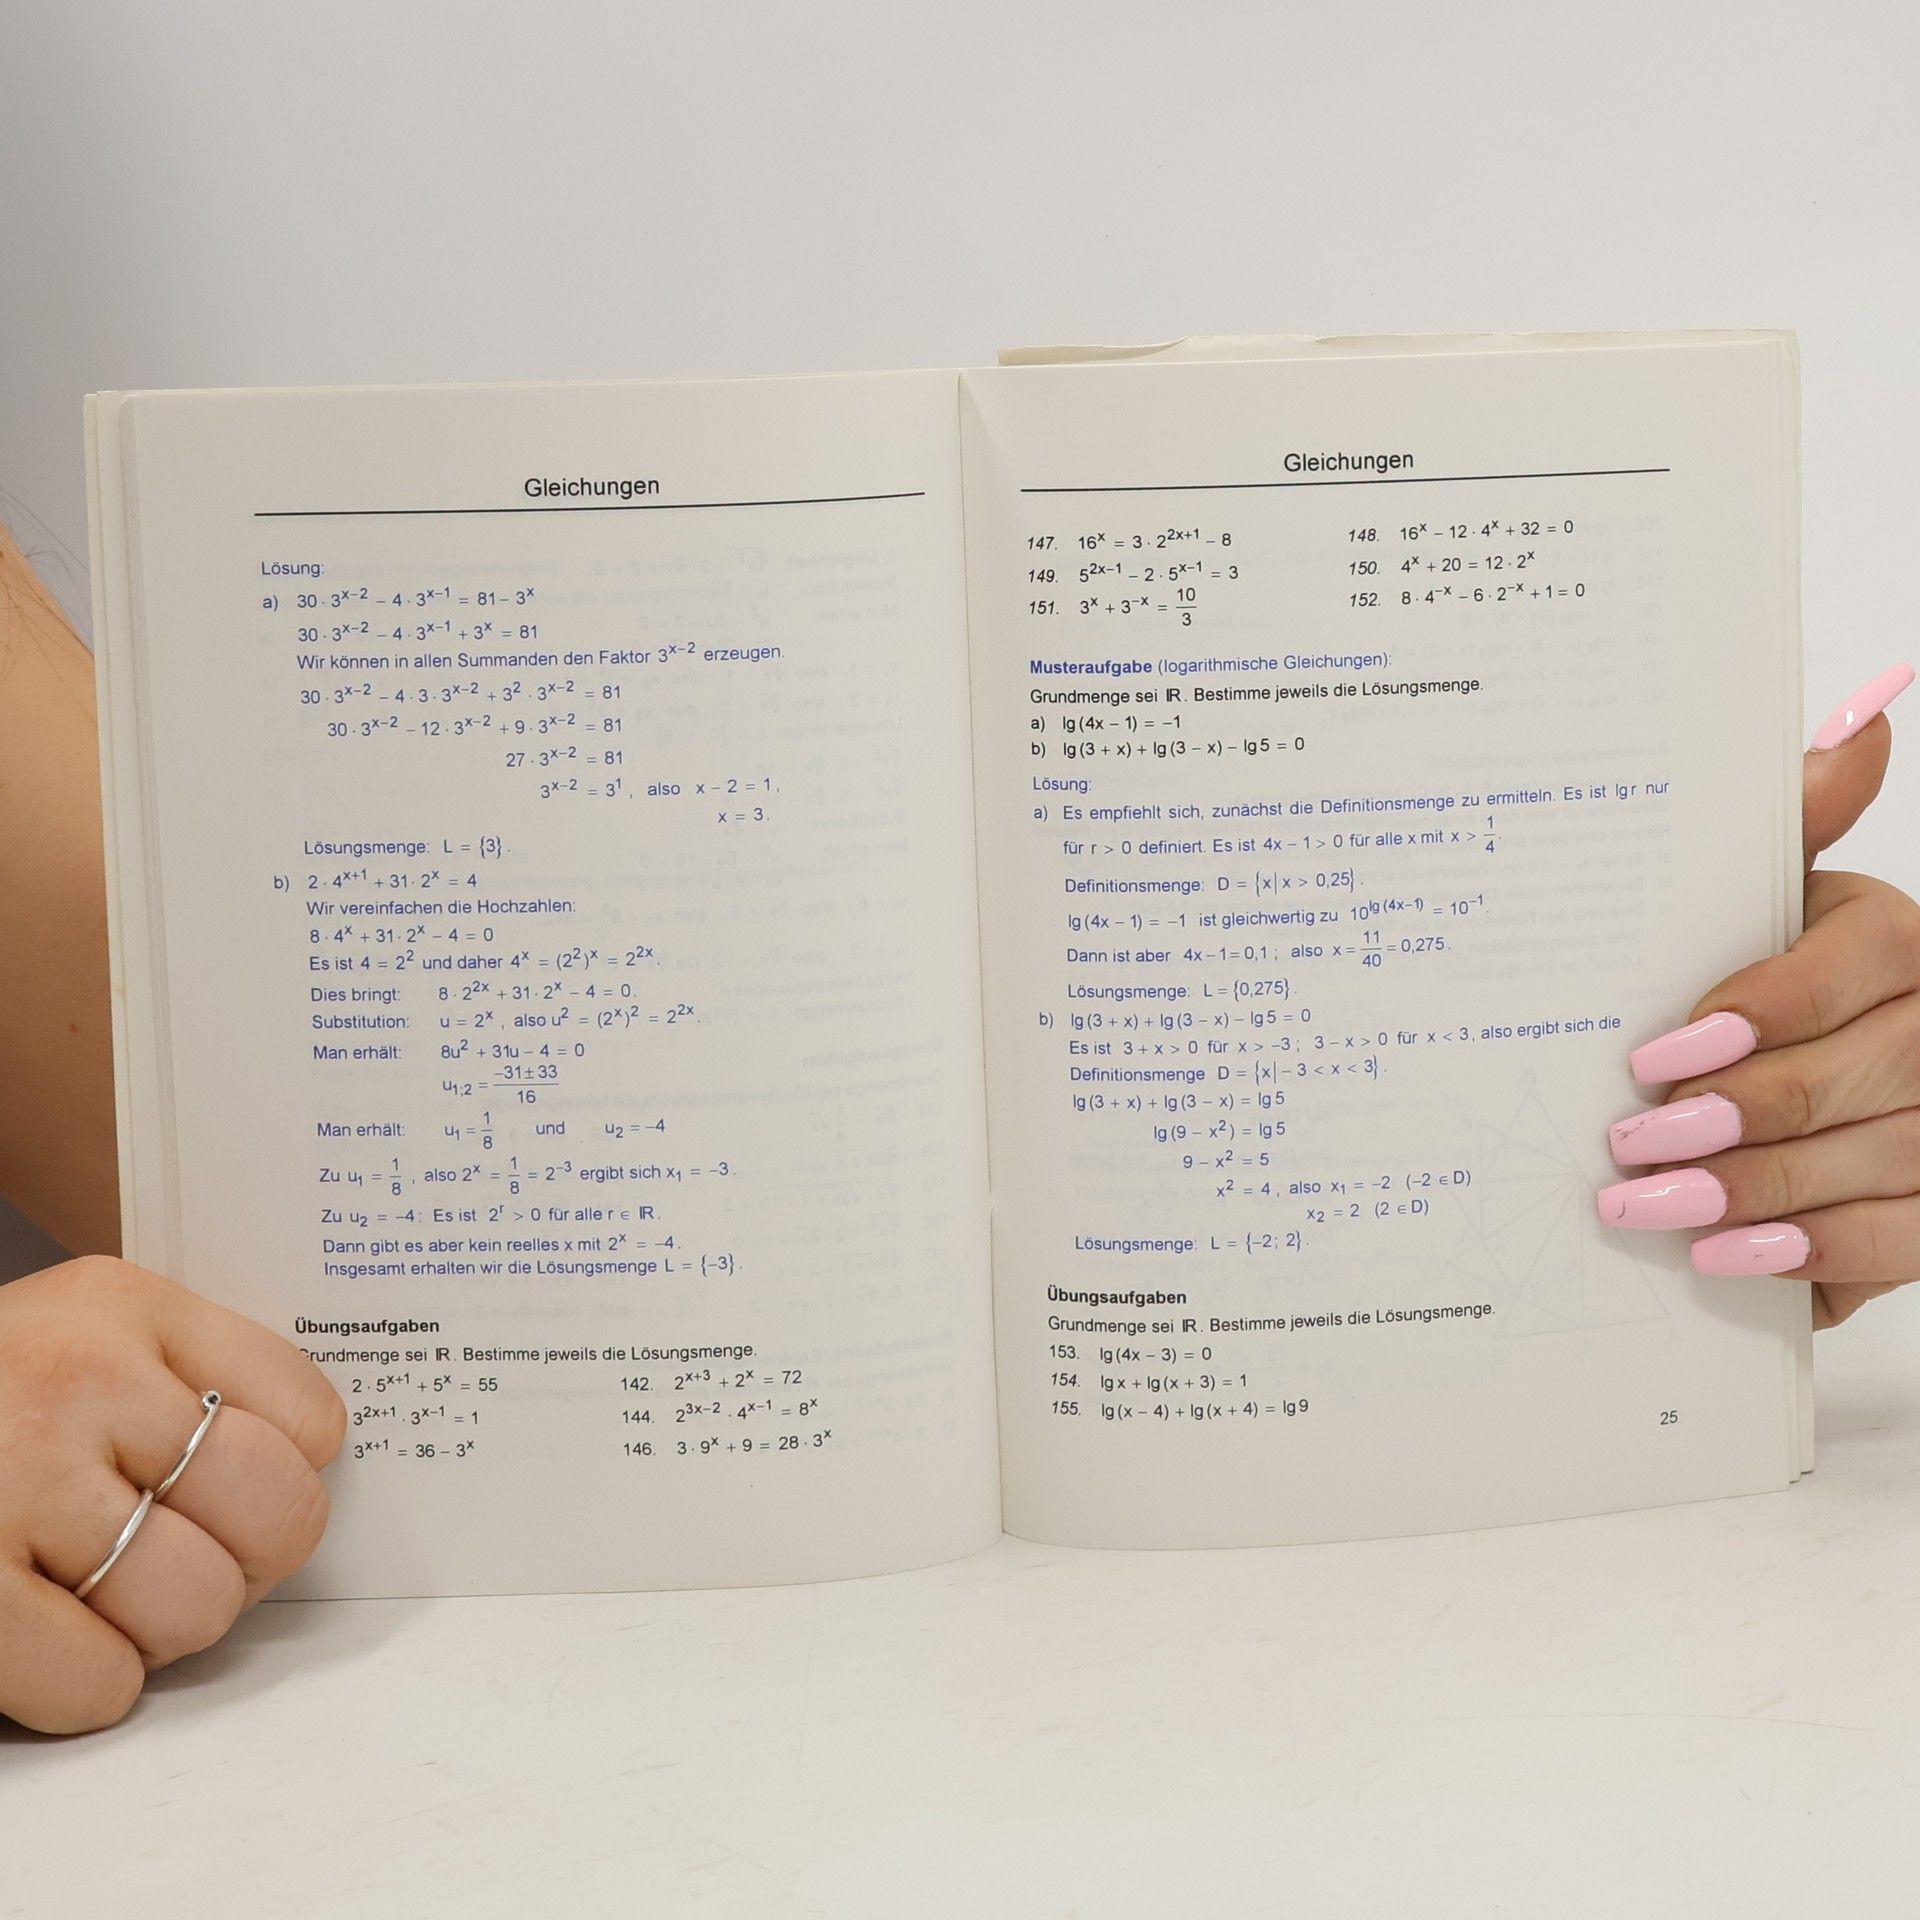 Gleichungen
Lösung:
a) 30 · 3^(x−2) − 4 · 3^(x−1) = 81 − 3^x
30 · 3^(x−2) − 4 · 3^(x−1) + 3^x = 81
Wir können in allen Summanden den Faktor 3^(x−2) erzeugen.
30 · 3^(x−2) − 4 · 3 · 3^(x−2) + 3² · 3^(x−2) = 81
30 · 3^(x−2) − 12 · 3^(x−2) + 9 · 3^(x−2) = 81
27 · 3^(x−2) = 81
3^(x−2) = 3¹, also x − 2 = 1,
x = 3.
Lösungsmenge: L = {3}.
b) 2 · 4^(x+1) + 31 · 2^x = 4
Wir vereinfachen die Hochzahlen:
8 · 4^x + 31 · 2^x − 4 = 0
Es ist 4 = 2² und daher 4^x = (2²)^x = 2^(2x).
Dies bringt: 8 · 2^(2x) + 31 · 2^x − 4 = 0.
Substitution: u = 2^x, also u² = (2^x)² = 2^(2x).
Man erhält: 8u² + 31u − 4 = 0
u₁;₂ = (−31 ± 33)/16
Man erhält: u₁ = 1/8 und u₂ = −4
Zu u₁ = 1/8, also 2^x = 1/8 = 2^(−3) ergibt sich x₁ = −3.
Zu u₂ = −4: Es ist 2^r > 0 für alle r ∈ ℝ.
Dann gibt es aber kein reelles x mit 2^x = −4.
Insgesamt erhalten wir die Lösungsmenge L = {−3}.
Übungsaufgaben
Grundmenge sei ℝ. Bestimme jeweils die Lösungsmenge.
2 · 5^(x+1) + 5^x = 55 142. 2^(x+3) + 2^x = 72
3^(2x+1) · 3^(x−1) = 1 144. 2^(3x−2) · 4^(x−1) = 8^x
3^(x+1) = 36 − 3^x 146. 3 · 9^x + 9 = 28 · 3^x
Gleichungen
147. 16^x = 3 · 2^(2x+1) − 8 148. 16^x − 12 · 4^x + 32 = 0
149. 5^(2x−1) − 2 · 5^(x−1) = 3 150. 4^x + 20 = 12 · 2^x
151. 3^x + 3^(−x) = 10/3 152. 8 · 4^(−x) − 6 · 2^(−x) + 1 = 0
Musteraufgabe (logarithmische Gleichungen):
Grundmenge sei ℝ. Bestimme jeweils die Lösungsmenge.
a) lg (4x − 1) = −1
b) lg (3 + x) + lg (3 − x) − lg 5 = 0
Lösung:
a) Es empfiehlt sich, zunächst die Definitionsmenge zu ermitteln. Es ist lg r nur
für r > 0 definiert. Es ist 4x − 1 > 0 für alle x mit x > 1/4.
Definitionsmenge: D = {x| x > 0,25}.
lg (4x − 1) = −1 ist gleichwertig zu 10^(lg (4x−1)) = 10^(−1).
Dann ist aber 4x − 1 = 0,1; also x = 11/40 = 0,275.
Lösungsmenge: L = {0,275}.
b) lg (3 + x) + lg (3 − x) − lg 5 = 0
Es ist 3 + x > 0 für x > −3; 3 − x > 0 für x < 3, also ergibt sich die
Definitionsmenge D = {x| − 3 < x < 3}.
lg (3 + x) + lg (3 − x) = lg 5
lg (9 − x²) = lg 5
9 − x² = 5
x² = 4, also x₁ = −2 (−2 ∈ D)
x₂ = 2 (2 ∈ D)
Lösungsmenge: L = {−2; 2}.
Übungsaufgaben
Grundmenge sei ℝ. Bestimme jeweils die Lösungsmenge.
153. lg (4x − 3) = 0
154. lg x + lg (x + 3) = 1
155. lg (x − 4) + lg (x + 4) = lg 9
25